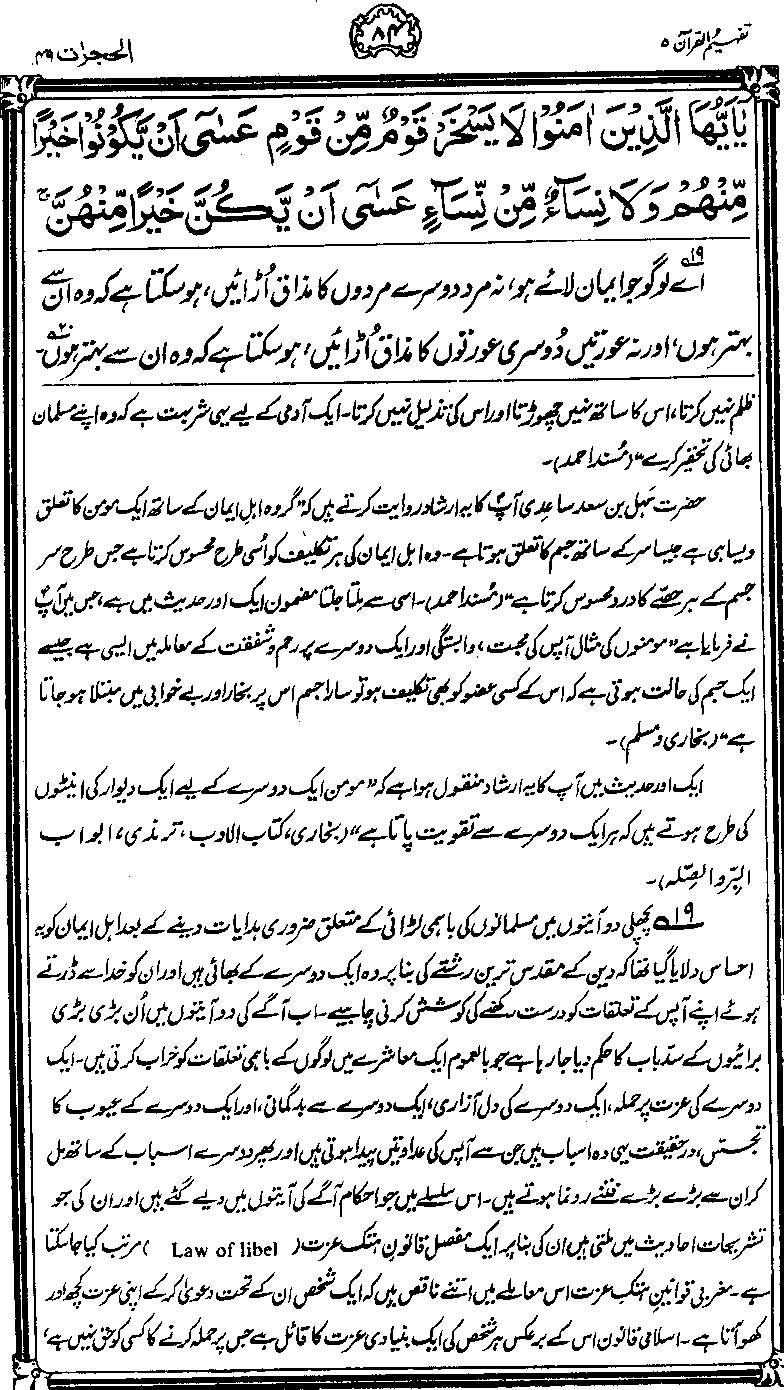 تفہیم القرآن ۵
۸۴
الحجرات ۴۹
يٰۤاَيُّهَا الَّذِيْنَ اٰمَنُوْا لَا يَسْخَرْ قَوْمٌ مِّنْ قَوْمٍ عَسٰۤى اَنْ يَّكُوْنُوْا خَيْرًا
مِّنْهُمْ وَلَا نِسَآءٌ مِّنْ نِّسَآءٍ عَسٰۤى اَنْ يَّكُنَّ خَيْرًا مِّنْهُنَّ ۚ
اے لوگو جو ایمان لائے ہو، نہ مرد دوسرے مردوں کا مذاق اُڑائیں، ہو سکتا ہے کہ وہ ان سے
بہتر ہوں، اور نہ عورتیں دُوسری عورتوں کا مذاق اُڑائیں، ہو سکتا ہے کہ وہ ان سے بہتر ہوں۔
ظلم نہیں کرتا، اس کا ساتھ نہیں چھوڑتا اور اس کی تذلیل نہیں کرتا۔ ایک آدمی کے لیے یہی شر بہت ہے کہ وہ اپنے مسلمان
بھائی کی تحقیر کرے“ (مُسند احمد)۔
حضرت سَہل بن سعد ساعِدی آپؐ کا یہ ارشاد روایت کرتے ہیں کہ ”گروہ اہلِ ایمان کے ساتھ ایک مومن کا تعلق
ویسا ہی ہے جیسا سر کے ساتھ جسم کا تعلق ہوتا ہے۔ وہ اہل ایمان کی ہر تکلیف کو اُسی طرح محسوس کرتا ہے جس طرح سر
جسم کے ہر حصّے کا درد محسوس کرتا ہے“ (مُسند احمد)۔ اسی سے ملتا جلتا مضمون ایک اور حدیث میں ہے، جس میں آپؐ
نے فرمایا ہے ”مومنوں کی مثال آپس کی محبت، وابستگی اور ایک دوسرے پر رحم و شفقت کے معاملہ میں ایسی ہے جیسے
ایک جسم کی حالت ہوتی ہے کہ اس کے کسی عضو کو بھی تکلیف ہو تو سارا جسم اس پر بخار اور بے خوابی میں مبتلا ہو جاتا
ہے“ (بخاری و مسلم)۔
ایک اور حدیث میں آپ کا یہ ارشاد منقول ہوا ہے کہ ”مومن ایک دوسرے کے لیے ایک دیوار کی اینٹوں
کی طرح ہوتے ہیں کہ ہر ایک دوسرے سے تقویت پاتا ہے“ (بخاری، کتاب الادب، ترمذی، ابواب
البِرّ والصِّلہ)۔
۱۹ پچھلی دو آیتوں میں مسلمانوں کی باہمی لڑائی کے متعلق ضروری ہدایات دینے کے بعد اہل ایمان کو یہ
احساس دلایا گیا تھا کہ دین کے مقدس ترین رشتے کی بنا پر وہ ایک دوسرے کے بھائی ہیں اور ان کو خدا سے ڈرتے
ہوئے اپنے آپس کے تعلقات کو درست رکھنے کی کوشش کرنی چاہیے۔ اب آگے کی دو آیتوں میں اُن بڑی بڑی
برائیوں کے سدّباب کا حکم دیا جا رہا ہے جو بالعموم ایک معاشرے میں لوگوں کے باہمی تعلقات کو خراب کرتی ہیں۔ ایک
دوسرے کی عزت پر حملہ، ایک دوسرے کی دل آزاری، ایک دوسرے سے بدگمانی، اور ایک دوسرے کے عیوب کا
تجسّس، درحقیقت یہی وہ اسباب ہیں جن سے آپس کی عداوتیں پیدا ہوتی ہیں اور پھر دوسرے اسباب کے ساتھ مل
کر ان سے بڑے بڑے فتنے رونما ہوتے ہیں۔ اس سلسلے میں جو احکام آگے کی آیتوں میں دیے گئے ہیں اور ان کی جو
تشریحات احادیث میں ملتی ہیں ان کی بنا پر ایک مفصل قانونِ ہتکِ عزت (Law of libel) مرتب کیا جا سکتا
ہے۔ مغربی قوانینِ ہتکِ عزت اس معاملے میں اتنے ناقص ہیں کہ ایک شخص ان کے تحت دعویٰ کر کے اپنی عزت کچھ اور
کھو آتا ہے۔ اسلامی قانون اس کے برعکس ہر شخص کی ایک بنیادی عزت کا قائل ہے جس پر حملہ کرنے کا کسی کو حق نہیں ہے،